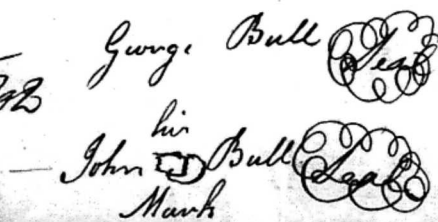 George Bull Seal
his
John J Bull Seal
Mark